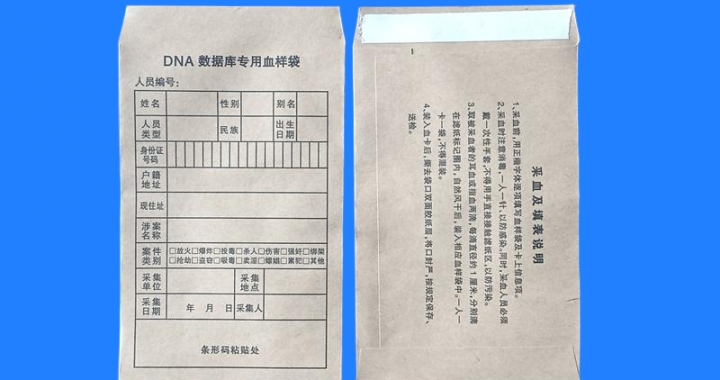 DNA 数据库专用血样袋
人员编号：
姓名 性别 别名
人员类型 民族 出生日期
身份证号码
户籍地址
现住址
涉案名称
案件类别 □放火□爆炸□投毒□杀人□伤害□强奸□绑架
□抢劫□盗窃□吸毒□卖淫□嫖娼□累犯□其他
采集单位 采集地点
采集日期 年 月 日 采集人
条形码粘贴处
采血及填表说明
1、采血前，用正楷字体逐项填写血样袋及卡上信息项。
2、采血时注意消毒，一人一针、以防感染。同时，采血人员必须
戴一次性手套，不得用手直接接触滤纸区，以防污染。
3、取被采血者的耳血或指血两滴，每滴直径约1厘米，分别滴
在滤纸标记圈内，自然风干后，装入相应血样袋中。一人一
卡一袋，不得混装。
4、装入血卡后，撕去袋口双面胶纸层，将口封严，按规定保存、
送检。